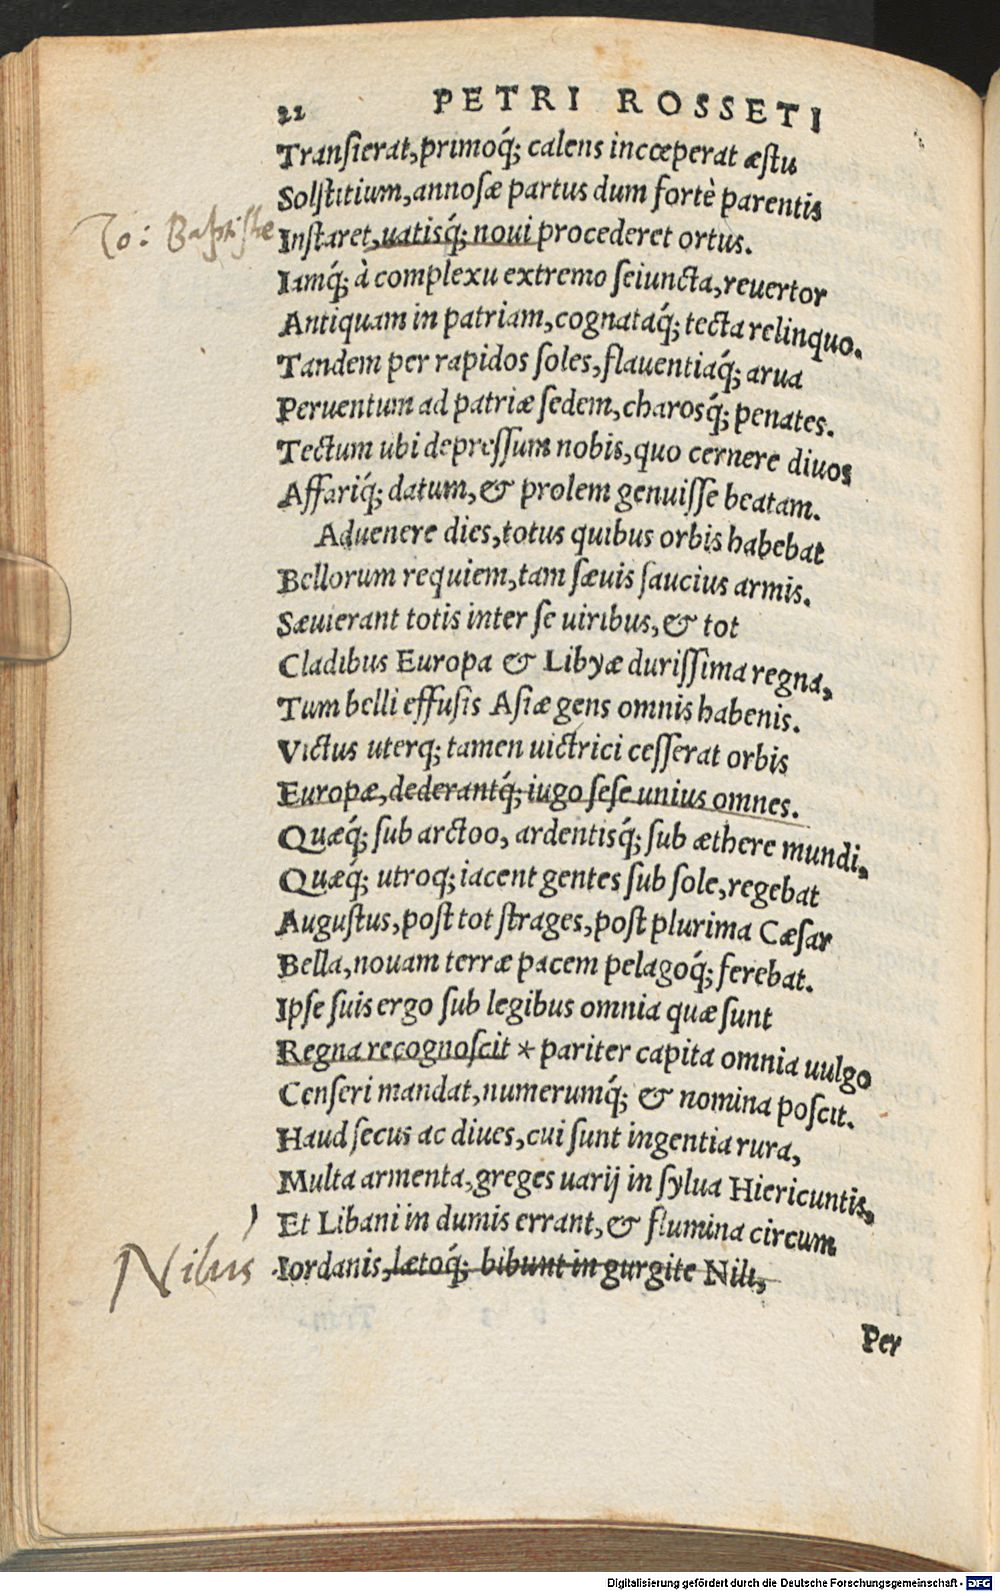 22 PETRI ROSSETI
Transierat, primoq́; calens incœperat æstu
Solstitium, annosæ partus dum fortè parentis
Io: Baptiste
Instaret, uatisq́; noui procederet ortus.
Iamq́; à complexu extremo seiuncta, reuertor
Antiquam in patriam, cognataq́; tecta relinquo.
Tandem per rapidos soles, flauentiaq́; arua
Peruentum ad patriæ sedem, charosq́; penates.
Tectum ubi depressum nobis, quo cernere diuos
Affariq́; datum, & prolem genuisse beatam.
Aduenere dies, totus quibus orbis habebat
Bellorum requiem, tam sæuis saucius armis.
Sæuierant totis inter se uiribus, & tot
Cladibus Europa & Libyæ durissima regna,
Tum belli effusis Asiæ gens omnis habenis.
Victus uterq; tamen uictrici cesserat orbis
Europæ, dederantq́; iugo sese unius omnes.
Quæq́; sub arctoo, ardentisq́; sub æthere mundi,
Quæq́; utroq; iacent gentes sub sole, regebat
Augustus, post tot strages, post plurima Cæsar
Bella, nouam terræ pacem pelagoq́; ferebat.
Ipse suis ergo sub legibus omnia quæ sunt
Regna recognoscit * pariter capita omnia uulgo
Censeri mandat, numerumq́; & nomina poscit.
Haud secus ac diues, cui sunt ingentia rura,
Multa armenta, greges uarij in sylua Hiericuntis,
Et Libani in dumis errant, & flumina circum
Nilus
Iordanis, lætoq́; bibunt in gurgite Nili,
Per
Digitalisierung gefördert durch die Deutsche Forschungsgemeinschaft - DFG